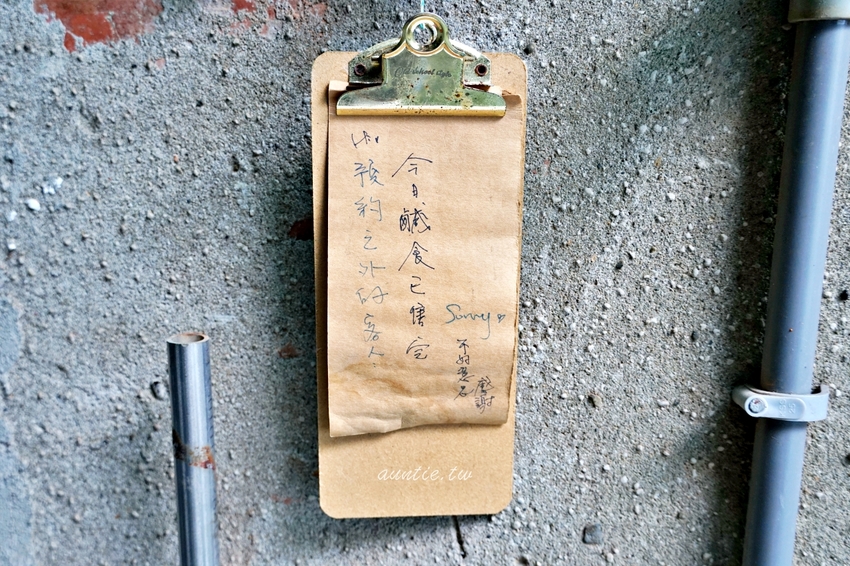 今日鹹食已售完
預約之外的客人
Sorry♥
不好意思
感謝
auntie.tw